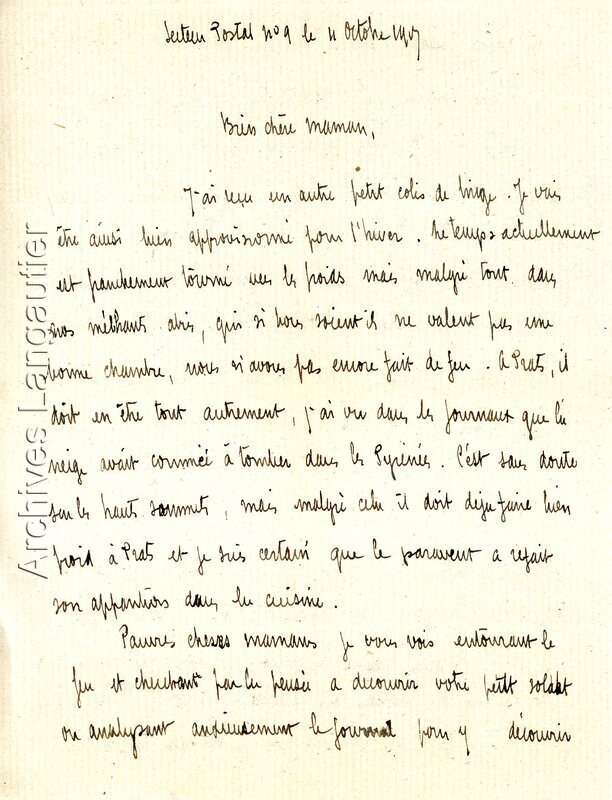 Secteur Postal n° 9 le 11 Octobre 1915
Bien chère maman,
J'ai reçu un autre petit colis de linge. Je vais
être ainsi bien approvisonné pour l'hiver. Le temps actuellement
est franchement tourné vers les froids mais malgré tout dans
nos méchants abris, qui si bons soient ils ne valent pas une
bonne chambre, nous n'avons pas encore fait de feu. A Prats, il
doit en être tout autrement, j'ai vu dans les journaux que la
neige avait commcé à tomber dans les Pyrénées. C'est sans doute
sur les hauts sommets, mais malgré cela il doit deja faire bien
froid à Prats et je suis certain que le paravent a refait
son apparition dans la cuisine.
Pauvres cheres mamans je vous vois entourant le
feu et cherchant par la pensée a decouvrir votre petit soldat
ou analysant anxieusement le journal pour y découvrir
Archives Langautier